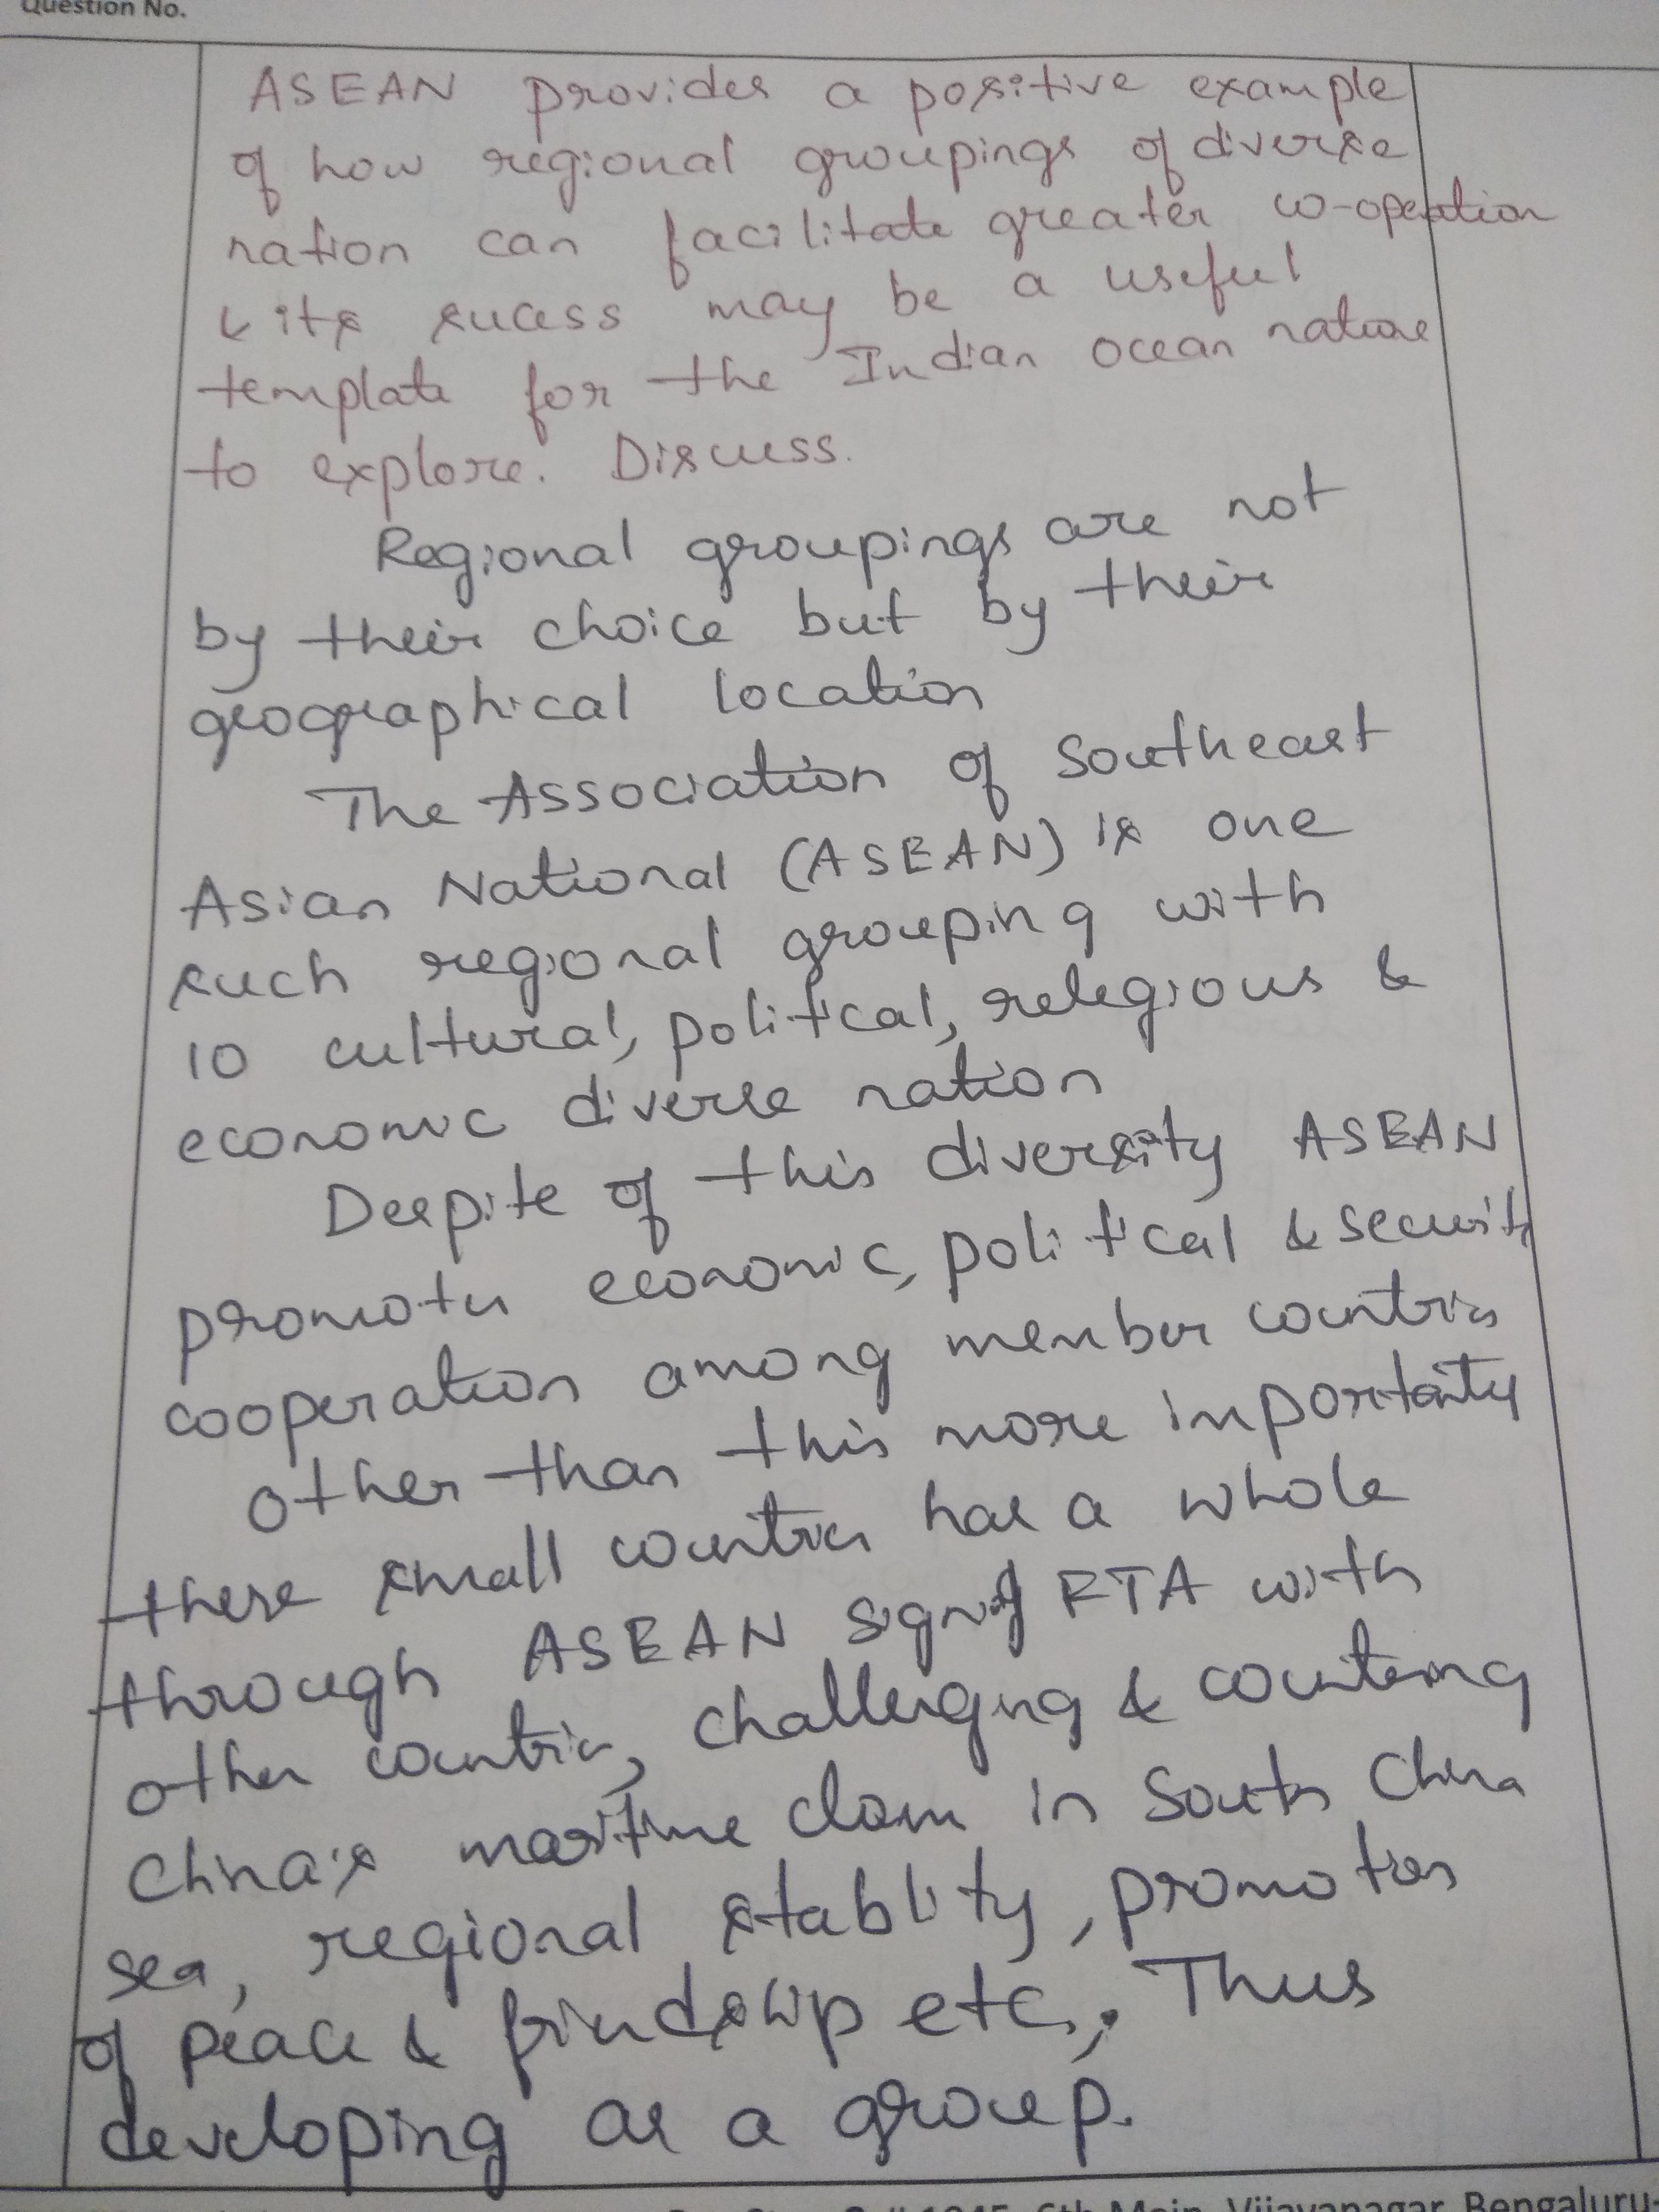 Question No.
ASEAN provides a positive example
of how regional groupings of diverse
nation can facilitate greater co-operation
& its sucess may be a useful
template for the Indian ocean nature
to explore. Discuss.
Regional groupings are not
by their choice but by their
geographical location
The Association of Southeast
Asian National (ASEAN) is one
such regional grouping with
10 cultural, political, relegious &
economic diverse nation
Despite of this diversity ASEAN
promotes economic, political & security
cooperation among member countries
other than this more importantly
these small countries has a whole
through ASEAN signing FTA with
other countries, challenging & countering
China's maritime claim in South China
sea, regional stablity, promotion
of peace & friendship etc,. Thus
developing as a group.
6th Main, Vijayanagar, Bengaluru-